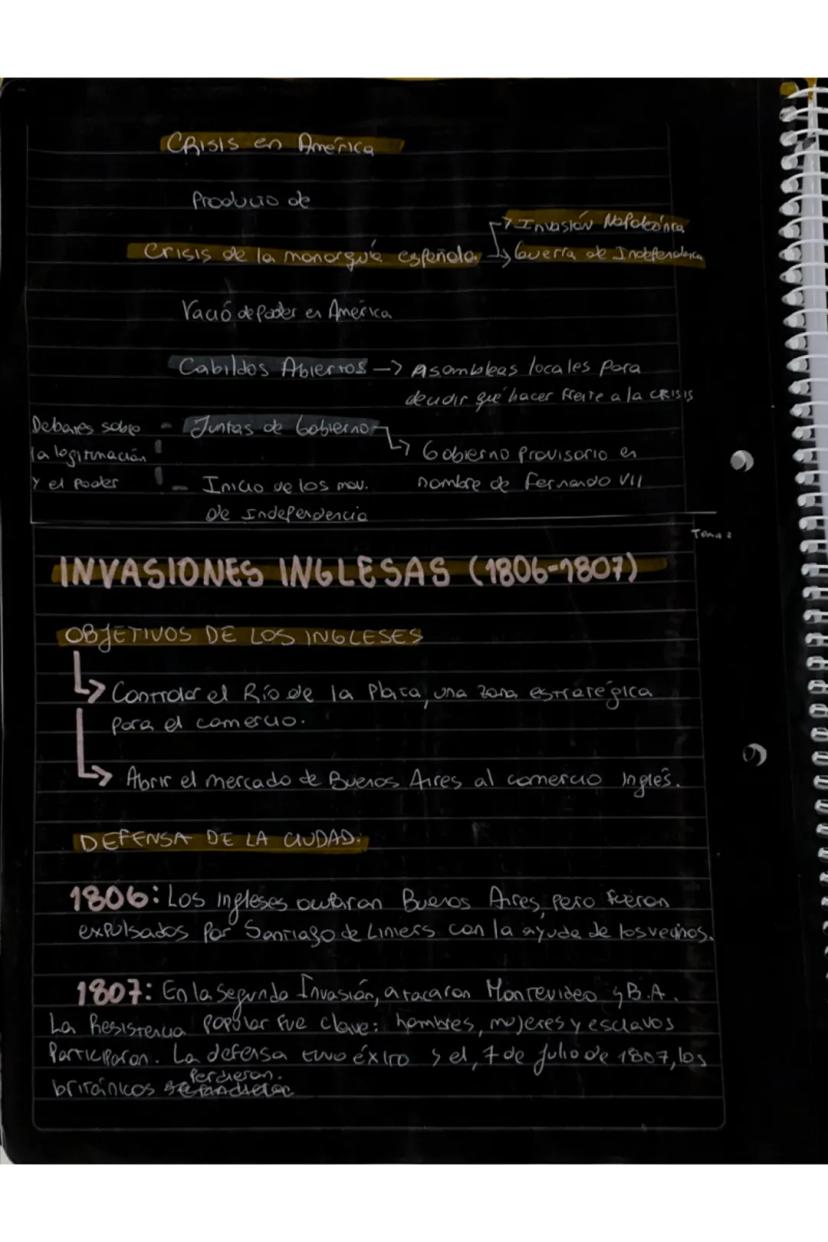 Crisis en América
Producto de
Crisis de la monarquía española
→ Invasión Napoleónica
→ Guerra de Independencia
Vació de poder en América
Cabildos Abiertos → Asambleas locales para
decidir qué hacer frente a la crisis
Debates sobre
la legitimación
y el poder
- Juntas de Gobierno
→ Gobierno Provisorio en
nombre de Fernando VII
- Inicio de los mov.
de Independencia
Tema 2
INVASIONES INGLESAS (1806-1807)
OBJETIVOS DE LOS INGLESES
→ Controlar el Río de la Plata, una zona estratégica
para el comercio.
→ Abrir el mercado de Buenos Aires al comercio Inglés.
DEFENSA DE LA CIUDAD.
1806: Los ingleses ocuparon Buenos Aires, pero fueron
expulsados por Santiago de Liniers con la ayuda de los vecinos.
1807: En la segunda Invasión, atacaron Montevideo y B.A.
La Resistencia popular fue clave: hombres, mujeres y esclavos
Participaron. La defensa tuvo éxito y el, 7 de julio de 1807, los
británicos perdieron.